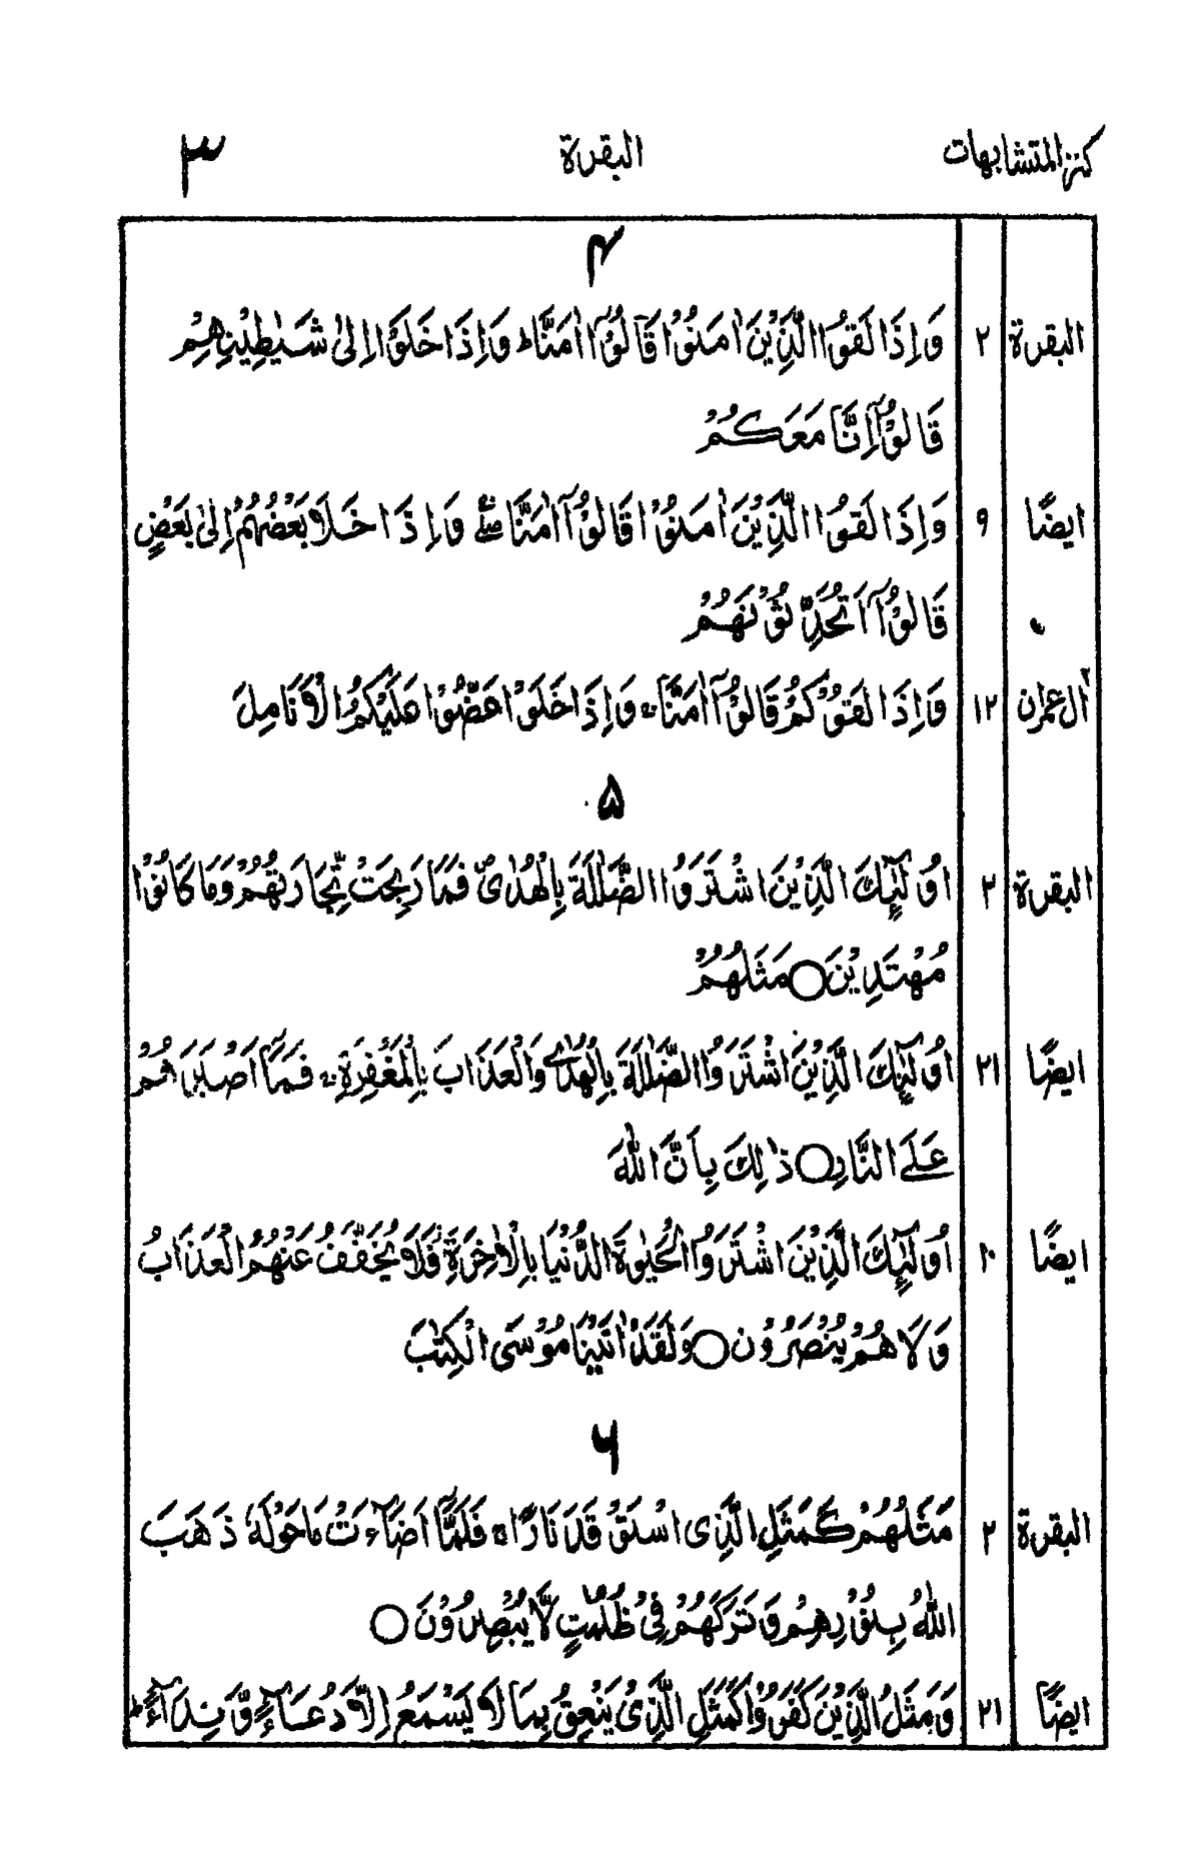 كنز المتشابهات البقرة ٣
۴
البقرة ٢ وَاِذَا لَقُوا الَّذِيْنَ اٰمَنُوْا قَالُوْٓا اٰمَنَّا ۖ وَاِذَا خَلَوْا اِلٰى شَيٰطِيْنِهِمْ
قَالُوْٓا اِنَّا مَعَكُمْ
ايضًا ٩ وَاِذَا لَقُوا الَّذِيْنَ اٰمَنُوْا قَالُوْٓا اٰمَنَّا ۖ وَاِذَا خَلَا بَعْضُهُمْ اِلٰى بَعْضٍ
قَالُوْٓا اَتُحَدِّثُوْنَهُمْ
اٰل عمرٰن ١٢ وَاِذَا لَقُوْكُمْ قَالُوْٓا اٰمَنَّا وَاِذَا خَلَوْا عَضُّوْا عَلَيْكُمُ الْاَنَامِلَ
۵
البقرة ٢ اُولٰٓئِكَ الَّذِيْنَ اشْتَرَوُا الضَّلٰلَةَ بِالْهُدٰى فَمَا رَبِحَتْ تِّجَارَتُهُمْ وَمَا كَانُوْا
مُهْتَدِيْنَ ○ مَثَلُهُمْ
ايضًا ٢١ اُولٰٓئِكَ الَّذِيْنَ اشْتَرَوُا الضَّلٰلَةَ بِالْهُدٰى وَالْعَذَابَ بِالْمَغْفِرَةِ فَمَآ اَصْبَرَهُمْ
عَلَى النَّارِ ○ ذٰلِكَ بِاَنَّ اللّٰهَ
ايضًا ١٠ اُولٰٓئِكَ الَّذِيْنَ اشْتَرَوُا الْحَيٰوةَ الدُّنْيَا بِالْاٰخِرَةِ فَلَا يُخَفَّفُ عَنْهُمُ الْعَذَابُ
وَلَا هُمْ يُنْصَرُوْن ○ وَلَقَدْ اٰتَيْنَا مُوْسَى الْكِتٰبَ
۶
البقرة ٢ مَثَلُهُمْ كَمَثَلِ الَّذِى اسْتَوْقَدَ نَارًا فَلَمَّآ اَضَآءَتْ مَا حَوْلَهٗ ذَهَبَ
اللّٰهُ بِنُوْرِهِمْ وَتَرَكَهُمْ فِيْ ظُلُمٰتٍ لَّا يُبْصِرُوْنَ ○
ايضًا ٢١ وَمَثَلُ الَّذِيْنَ كَفَرُوْا كَمَثَلِ الَّذِيْ يَنْعِقُ بِمَا لَا يَسْمَعُ اِلَّا دُعَآءً وَّنِدَآءً ط